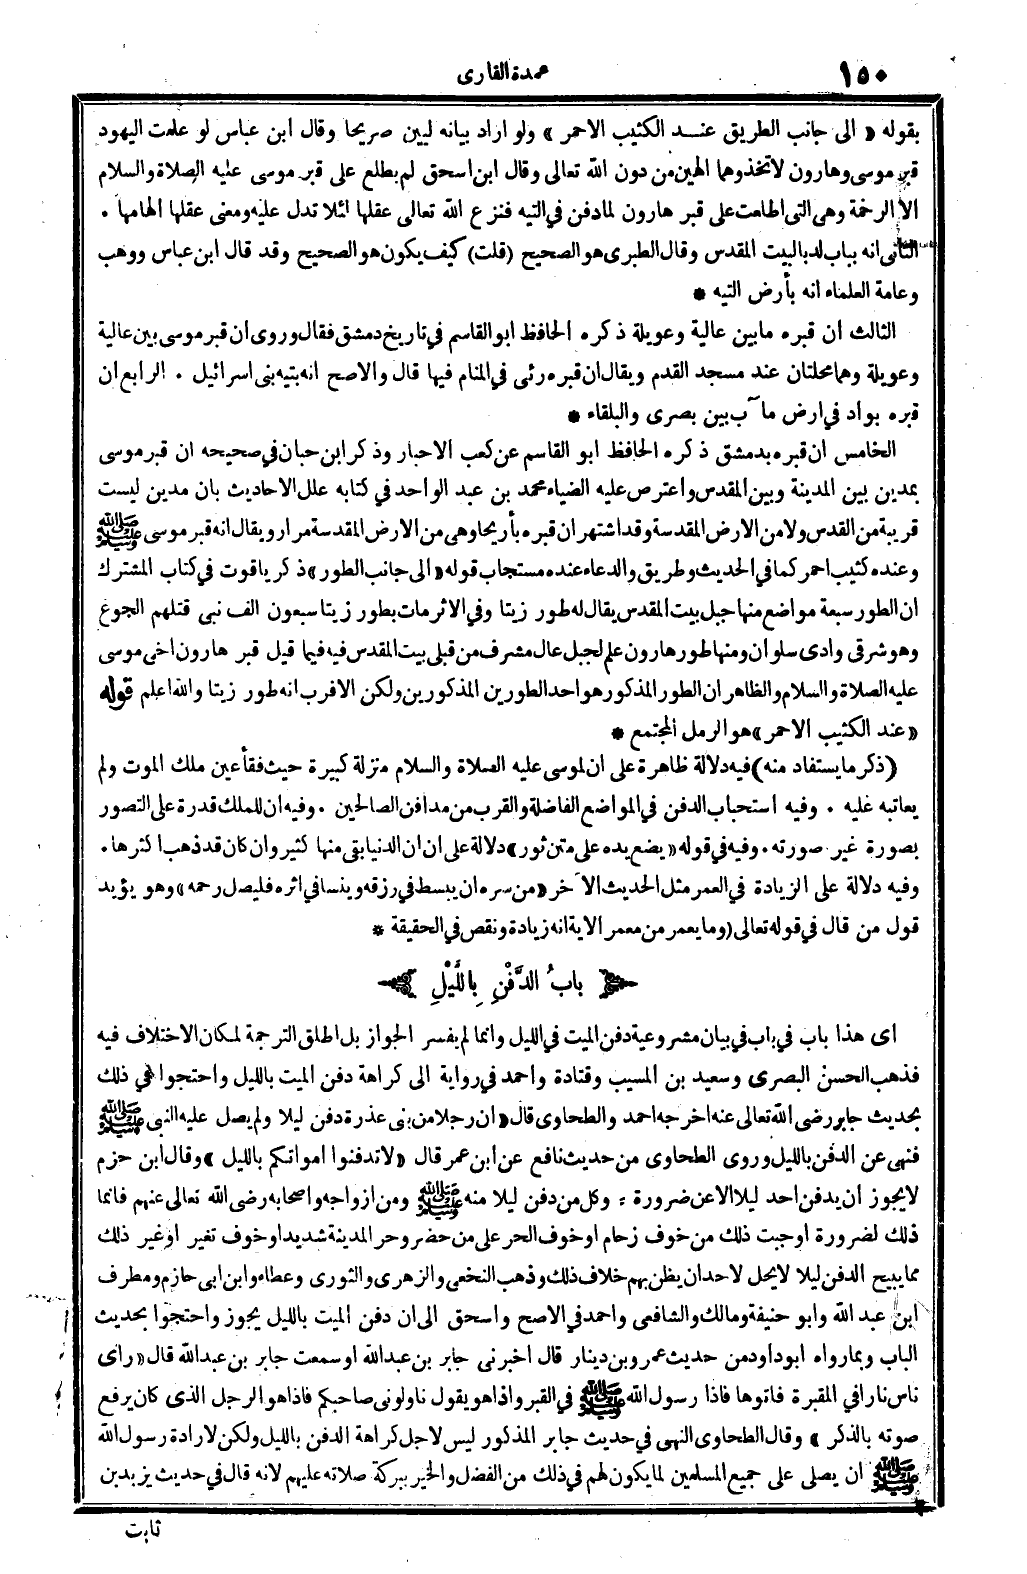 ١٥٠
عمدة القارى
بقوله « الى جانب الطريق عنـد الكثيب الاحمر » ولو اراد بيانه لبين صريحا وقال ابن عباس لو علمت اليهود
قبر موسى وهارون لاتخذوهما الهين من دون الله تعالى وقال ابن اسحق لم يطلع على قبر موسى عليه الصلاة والسلام
الا الرخمة وهى التى اطلعت على قبر هارون لما دفن في التيه فنزع الله تعالى عقلها لئلا تدل عليه ومعنى عقلها الهامها .
الثانى انه بباب لد بالبيت المقدس وقال الطبرى هو الصحيح (قلت) كيف يكون هو الصحيح وقد قال ابن عباس ووهب
وعامة العلماء انه بأرض التيه *
الثالث ان قبره مابين عالية وعويلة ذكره الحافظ ابو القاسم في تاريخ دمشق فقال وروى ان قبر موسى بين عالية
وعويلة وهما محلتان عند مسجد القدم ويقال ان قبره رئى في المنام فيها قال والاصح انه بتيه بنى اسرائيل . الرابع ان
قبره بواد في ارض مآب بين بصرى والبلقاء *
الخامس ان قبره بدمشق ذكره الحافظ ابو القاسم عن كعب الاحبار وذكر ابن حبان في صحيحه ان قبر موسى
بمدين بين المدينة وبين المقدس واعترض عليه الضياء محمد بن عبد الواحد في كتابه علل الاحاديث بان مدين ليست
قريبة من القدس ولا من الارض المقدسة وقد اشتهر ان قبره بأريحا وهى من الارض المقدسة مرار ويقال انه قبر موسى ﷺ
وعنده كثيب احمر كما في الحديث وطريق والدعاء عنده مستجاب قوله « الى جانب الطور » ذكر ياقوت في كتاب المشترك
ان الطور سبعة مواضع منها جبل بيت المقدس يقال له طور زيتا وفي الاثر مات بطور زيتا سبعون الف نبى قتلهم الجوع
وهو شرقى وادى سلوان ومنها طور هارون علم لجبل عال مشرف من قبلى بيت المقدس فيه فيما قيل قبر هارون اخى موسى
عليه الصلاة والسلام والظاهر ان الطور المذكور هو احد الطورين المذكورين ولكن الاقرب انه طور زيتا والله اعلم قوله
« عند الكثيب الاحمر » هو الرمل المجتمع *
(ذكر ما يستفاد منه) فيه دلالة ظاهرة على ان لموسى عليه الصلاة والسلام منزلة كبيرة حيث فقأ عين ملك الموت ولم
يعاتبه عليه . وفيه استحباب الدفن في المواضع الفاضلة والقرب من مدافن الصالحين . وفيه ان للملك قدرة على التصور
بصورة غير صورته . وفيه في قوله « يضع يده على متن ثور » دلالة على ان ان الدنيا بقى منها كثير وان كان قد ذهب اكثرها .
وفيه دلالة على الزيادة في العمر مثل الحديث الآخر « من سره ان يبسط في رزقه وينسا في اثره فليصل رحمه » وهو يؤيد
قول من قال في قوله تعالى (وما يعمر من معمر الاية انه زيادة ونقص في الحقيقة *
بابُ الدَّفْنِ بِاللَّيْلِ
اى هذا باب في باب في بيان مشروعية دفن الميت في الليل وانما لم يفسر الجواز بل اطلق الترجمة لمكان الاختلاف فيه
فذهب الحسن البصرى وسعيد بن المسيب وقتادة واحمد في رواية الى كراهة دفن الميت بالليل واحتجوا في ذلك
بحديث جابر رضى الله تعالى عنه اخرجه احمد والطحاوى قال « ان رجلا من بنى عذرة دفن ليلا ولم يصل عليه النبى ﷺ
فنهى عن الدفن بالليل وروى الطحاوى من حديث نافع عن ابن عمر قال « لا تدفنوا امواتكم بالليل » وقال ابن حزم
لا يجوز أن يدفن احد ليلا الا عن ضرورة . وكل من دفن ليلا منه ﷺ ومن ازواجه واصحابه رضى الله تعالى عنهم فانما
ذلك لضرورة اوجبت ذلك من خوف زحام او خوف الحر على من حضر وحر المدينة شديد او خوف تغير او غير ذلك
مما يبيح الدفن ليلا لا يحل لاحد ان يظن بهم خلاف ذلك وذهب النخعى والزهرى والثورى وعطاء وابن ابى حازم ومطرف
ابن عبد الله وابو حنيفة ومالك والشافعى واحمد في الاصح واسحق الى ان دفن الميت بالليل يجوز واحتجوا بحديث
الباب وبما رواه ابو داود من حديث عمرو بن دينار قال اخبرنى جابر بن عبد الله او سمعت جابر بن عبد الله قال « رأى
ناس نارا في المقبرة فاتوها فاذا رسول الله ﷺ في القبر واذا هو يقول ناولونى صاحبكم فاذا هو الرجل الذى كان يرفع
صوته بالذكر » وقال الطحاوى النهى في حديث جابر المذكور ليس لاجل كراهة الدفن بالليل ولكن لارادة رسول الله
ﷺ ان يصلى على جميع المسلمين لما يكون لهم في ذلك من الفضل والخير ببركة صلاته عليهم لانه قال في حديث يزيد بن
ثابت